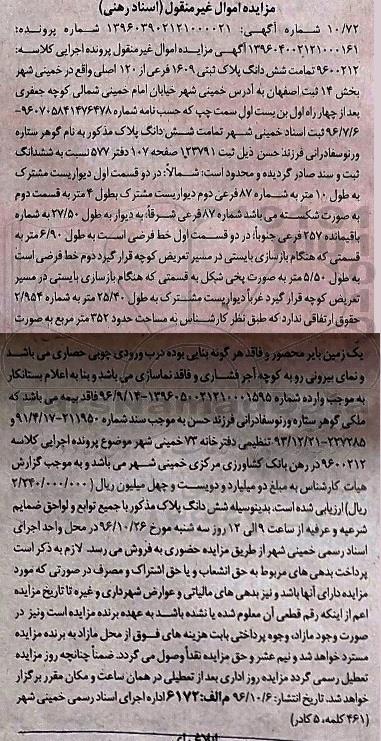 مزایده اموال غیر منقول (اسناد رهنی)
۱۰/۷۲ شماره آگهی: ۱۳۹۶۰۳۹۰۲۱۲۱۰۰۰۰۲۱ شماره پرونده:
۱۳۹۶۰۴۰۰۲۱۲۱۰۰۰۱۶۱ آگهی مزایده اموال غیر منقول پرونده اجرایی کلاسه:
۹۶۰۰۲۱۲ تمامت شش دانگ پلاک ثبتی ۱۶۰۹ فرعی از ۱۲۰ اصلی واقع در خمینی شهر
بخش ۱۴ ثبت اصفهان به آدرس خمینی شهر خیابان امام خمینی شمالی کوچه جعفری
بعد از چهار راه اول بن بست اول سمت چپ که حسب نامه شماره ۹۶۰۷۰۵۸۴۱۴۷۶۴۷۸-
۹۶/۷/۶ ثبت اسناد خمینی شهر تمامت شش دانگ پلاک مذکور به نام گوهر ستاره
ورنوسفادرانی فرزند حسن ذیل ثبت ۱۲۳۷۹۱ صفحه ۱۰۷ دفتر ۵۷۷ نسبت به ششدانگ
ثبت و سند صادر گردیده و محدود است: شمالاً: در دو قسمت اول دیواریست مشترک
به طول ۱۰ متر به شماره ۸۷ فرعی دوم دیواریست مشترک بطول ۴ متر به قسمت دوم
به صورت شکسته می باشد شماره ۸۷ فرعی شرقاً: به دیوار به طول ۲۷/۵۰ به شماره
باقیمانده ۲۵۷ فرعی جنوباً: در دو قسمت اول خط فرضی است به طول ۶/۹۰ متر به
قسمتی که هنگام بازسازی بایستی در مسیر تعریض کوچه قرار گیرد دوم خط فرضی است
به طول ۵/۵۰ متر به صورت پخی شکل به قسمتی که هنگام بازسازی بایستی در مسیر
تعریض کوچه قرار گیرد غرباً دیواریست مشترک به طول ۲۵/۴۰ متر به شماره ۲/۹۵۴
حقوق ارتفاقی ندارد که طبق نظر کارشناس نه مساحت حدود ۳۵۲ متر مربع به صورت
یک زمین بایر محصور و فاقد هر گونه بنایی بوده درب ورودی چوبی حصاری می باشد
و نمای بیرونی رو به کوچه آجر فشاری و فاقد نماسازی می باشد و بنا به اعلام بستانکار
به موجب وارده شماره ۱۳۹۶۰۵۰۰۲۱۲۱۰۰۰۱۵۹۵-۹۶/۹/۱۴ فاقد بیمه می باشد که
ملکی گوهر ستاره ورنوسفادرانی فرزند حسن به موجب سند شماره ۲۱۱۹۵۰-۹۱/۴/۱۷ و
۲۲۷۲۸۵-۹۳/۱۲/۲۱ تنظیمی دفترخانه ۷۳ خمینی شهر موضوع پرونده اجرایی کلاسه
۹۶۰۰۲۱۲ در رهن بانک کشاورزی مرکزی خمینی شهر می باشد و به موجب گزارش
هیات کارشناس به مبلغ دو میلیارد و دویست و چهل میلیون ریال (۲/۲۴۰/۰۰۰/۰۰۰
ریال) ارزیابی شده است. بدینوسیله شش دانگ پلاک مذکور با جمیع توابع و لواحق ضمایم
شرعیه و عرفیه از ساعت ۹ الی ۱۲ روز سه شنبه مورخ ۹۶/۱۰/۲۶ در محل واحد اجرای
اسناد رسمی خمینی شهر از طریق مزایده حضوری به فروش می رسد. لازم به ذکر است
پرداخت بدهی های مربوط به حق انشعاب و یا حق اشتراک و مصرف در صورتی که مورد
مزایده دارای آنها باشد و نیز بدهی های مالیاتی و عوارض شهرداری و غیره تا تاریخ مزایده
اعم از اینکه رقم قطعی آن معلوم شده یا نشده باشد به عهده برنده مزایده است ونیز در
صورت وجود مازاد، وجوه پرداختی بابت هزینه های فوق از محل مازاد به برنده مزایده
مسترد خواهد شد و نیم عشر و حق مزایده نقداً وصول می گردد. ضمناً چنانچه روز مزایده
تعطیل رسمی گردد مزایده روز اداری بعد از تعطیلی در همان ساعت و مکان مقرر برگزار
خواهد شد. تاریخ انتشار: ۹۶/۱۰/۶ م الف: ۶۱۷۲ اداره اجرای اسناد رسمی خمینی شهر
(۴۶۱ کلمه، ۵ کادر)